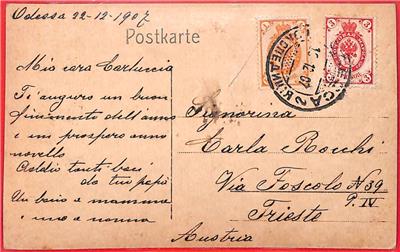 Odessa 22-12-1907
Postkarte
Mia cara Carluccia
Ti auguro un buon
finimento dell'anno
e un prospero anno
novello
Addio tanti baci
da tuo papà
Un bacio a mamma
e uno a nonna
Signorina
Carla Rocchi
Via Foscolo N 39
P. IV
Trieste
Austria
3